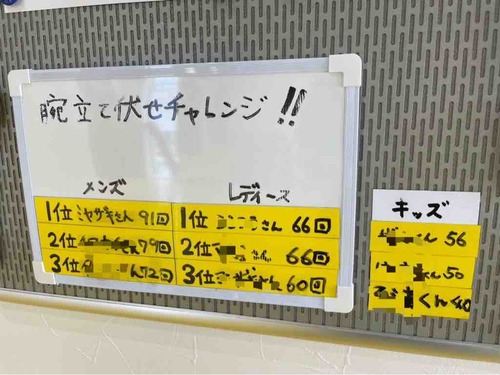 腕立て伏せチャレンジ!!
メンズ
1位 ミヤザキさん 91回
2位 79回
3位 72回
レディース
1位 さん 66回
2位 66回
3位 さん 60回
キッズ
くん 56
くん 50
くん 40